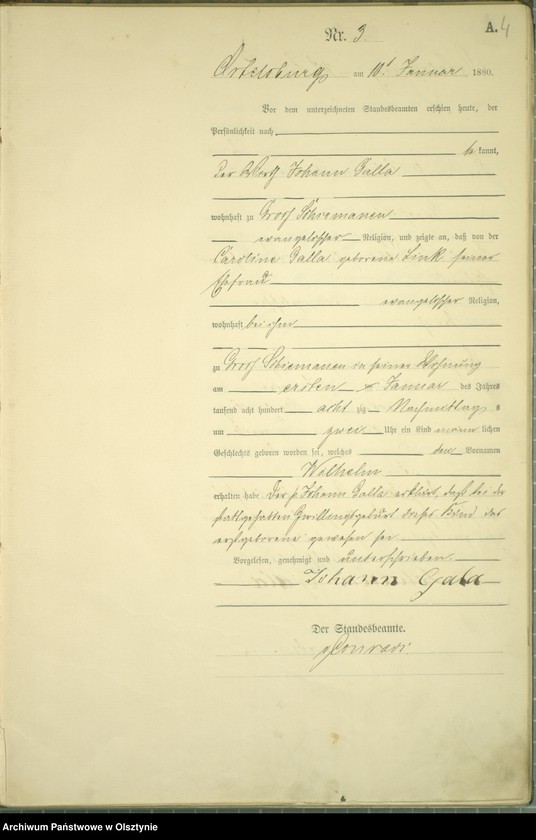 A. 4
Nr. 3
Ortelsburg am 10t Januar 1880.
Vor dem unterzeichneten Standesbeamten erschien heute, der
Persönlichkeit nach
bekannt,
der Wirth Johann Galla
wohnhaft zu Groß Schiemanen
evangelischer Religion, und zeigte an, daß von der
Caroline Galla geborene Link seiner
Ehefrau
evangelischer Religion,
wohnhaft bei ihm
zu Groß Schiemanen in seiner Wohnung
am ersten Januar des Jahres
tausend acht hundert achtzig Nachmittags
um zwei Uhr ein Kind männlichen
Geschlechts geboren worden sei, welches den Vornamen
Wilhelm
erhalten habe. Der p. Johann Galla erklärt, daß bei der
stattgehabten Zwillingsgeburt dieses Kind das
erstgeborene gewesen sei
Vorgelesen, genehmigt und unterschrieben
Johann Gala
Der Standesbeamte.
Conradi.
Archiwum Państwowe w Olsztynie